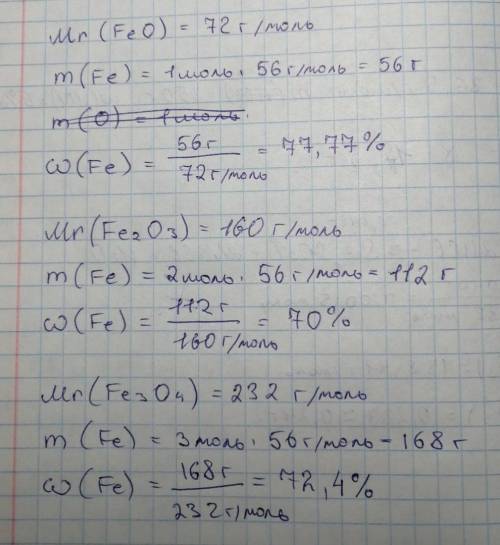 Mr (FeO) = 72 г/моль
m (Fe) = 1 моль · 56 г/моль = 56 г
m (O) = 1 моль.
ω (Fe) = 56 г / 72 г/моль = 77,77%
Mr (Fe₂O₃) = 160 г/моль
m (Fe) = 2 моль · 56 г/моль = 112 г
ω (Fe) = 112 г / 160 г/моль = 70%
Mr (Fe₃O₄) = 232 г/моль
m (Fe) = 3 моль · 56 г/моль - 168 г
ω (Fe) = 168 г / 232 г/моль = 72,4%